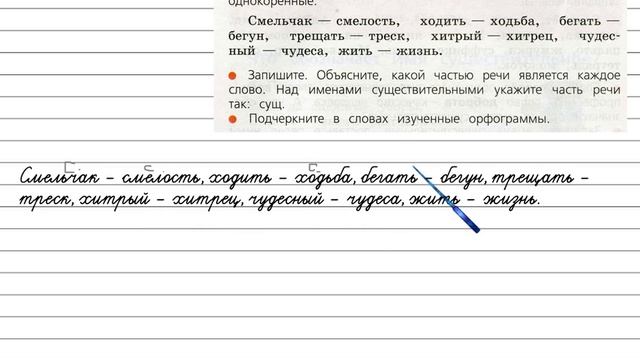 однокоренные.
Смельчак — смелость, ходить — ходьба, бегать —
бегун, трещать — треск, хитрый — хитрец, чудес-
ный — чудеса, жить — жизнь.
● Запишите. Объясните, какой частью речи является каждое
слово. Над именами существительными укажите часть речи
так: сущ.
● Подчеркните в словах изученные орфограммы.
С С С
Смельчак – смелость, ходить – ходьба, бегать – бегун, трещать –
треск, хитрый – хитрец, чудесный – чудеса, жить – жизнь.